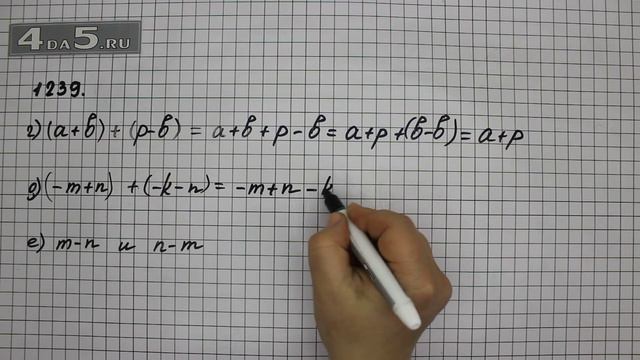 4DA5.RU
1239.
г) (a+b) + (p-b) = a+b+p-b = a+p+(b-b) = a+p
g) (-m+n) + (-k-n) = -m+n-k
e) m-n и n-m